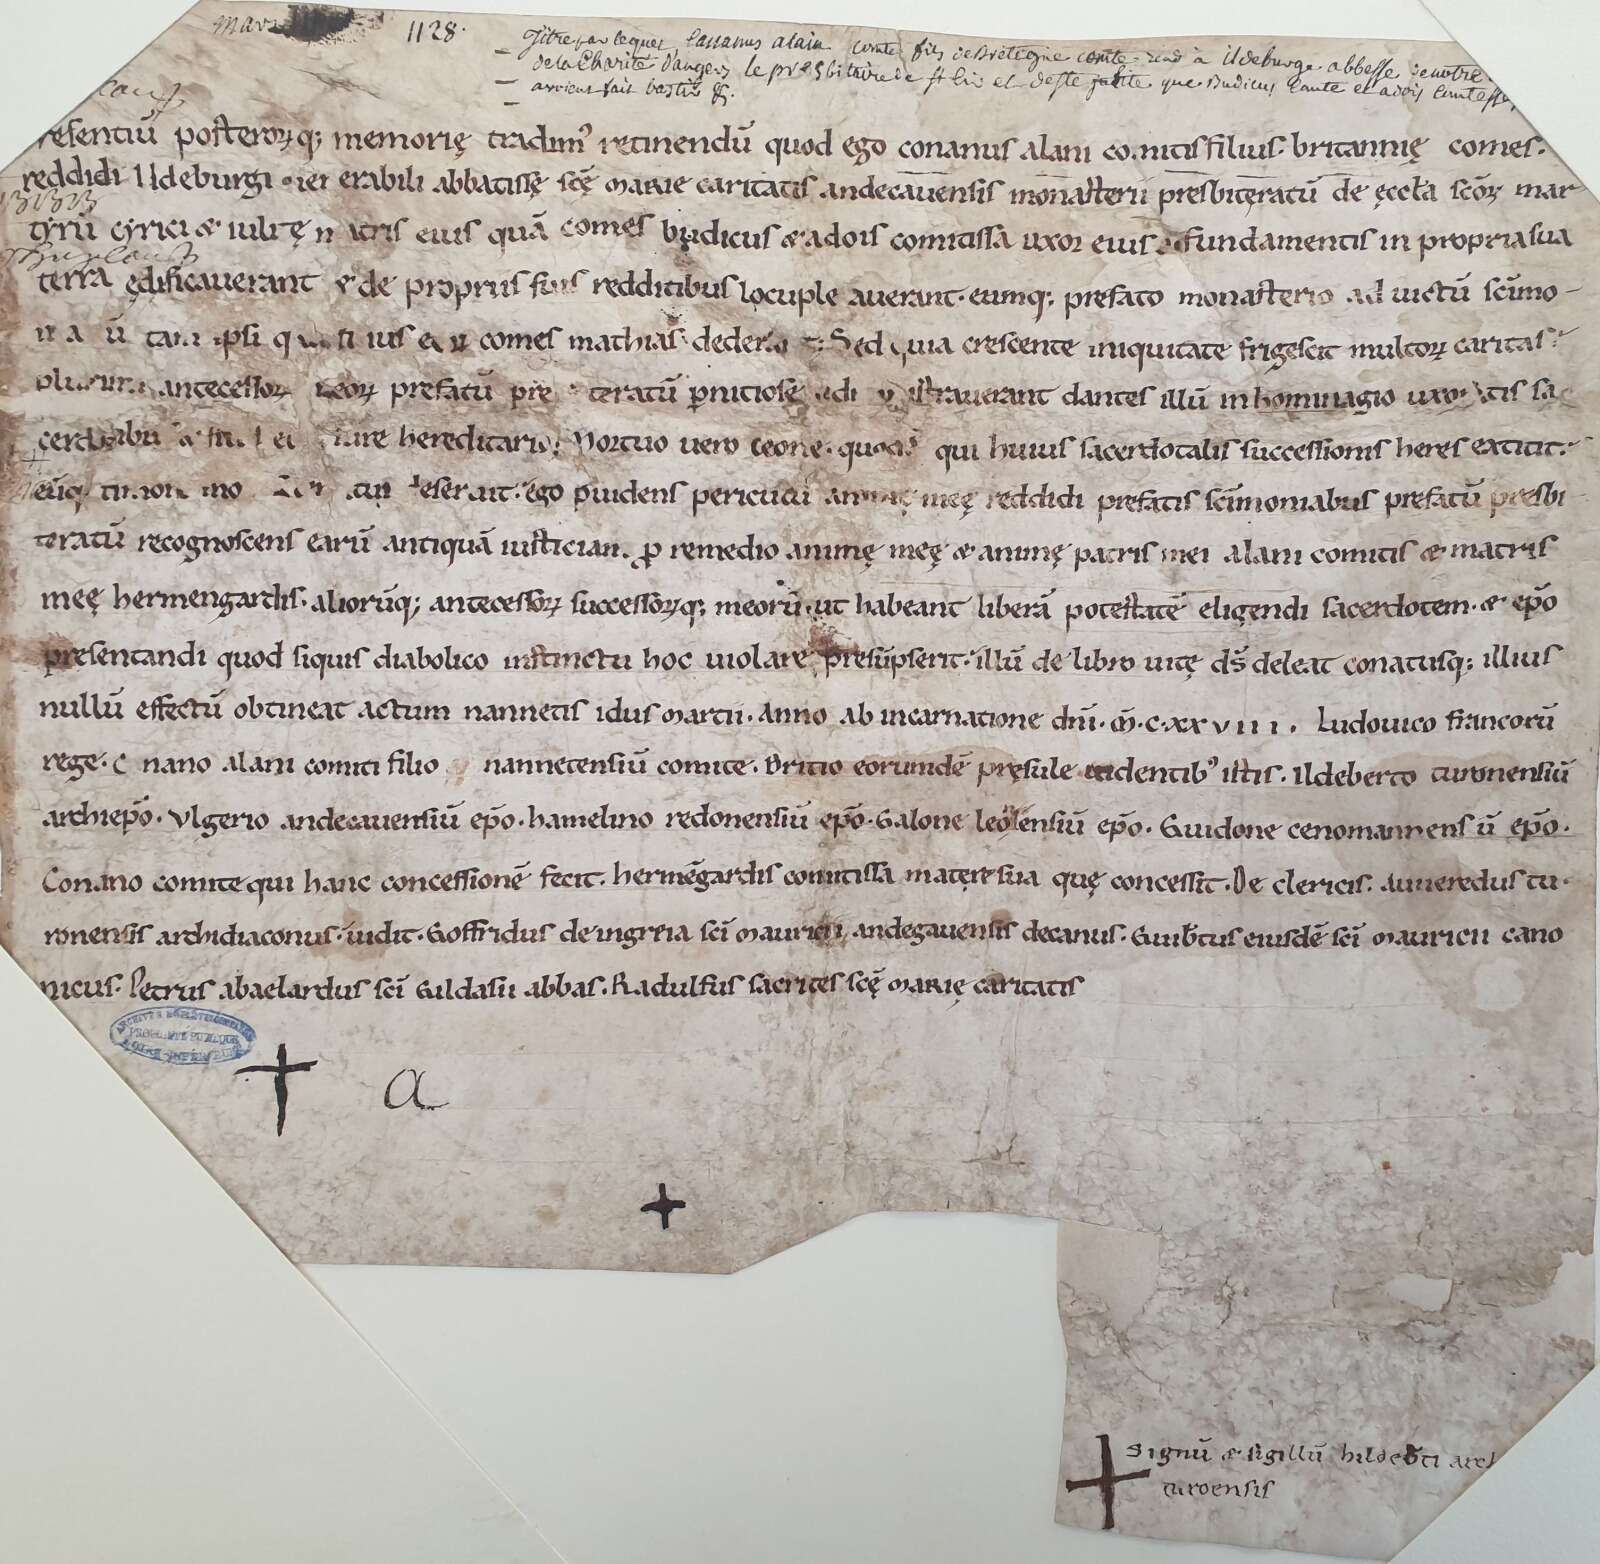 1128.
Titre par lequel Conanus alain comte fils de Bretagne comte rend à ildeburge abbesse de notre
de la Charité Dangers le presbitaire de st Cir et de Ste Julite que Budicus Comte et adois Comtesse
avoient fait bastir &c.
resentiū posterorꝫ q; memorię tradimꝰ retinendū quod ego conanus alani comitis filius. britannię comes.
reddidi Ildeburgi erabili abbatissę scę marie caritatis andecauensis monasterii presbiteratū de ęccła scōrꝫ mar
tyrū cyrici & iulitę matris eius quā comes budicus & adois comitissa uxor eius a fundamentis in propria sua
terra ędificauerant & de propriis suis redditibus locuple auerant. eumq; prefato monasterio ad uictū scīmo
comes mathias dederat. Sed quia crescente iniquitate frigescit multorꝫ caritas.
antecessorꝫ meorꝫ prefatū pre teratū ꝑniciose strauerant dantes illū in hominagio uxoratis sa
iure hereditario. Mortuo uero leone. quodā qui huius sacerdotalis successionis heres extitit.
eūq; deseruit. ego ꝓuidens periculū animę meę reddidi prefatis scīmonialibus prefatū presbi
teratū recognoscens earū antiquā iusticiam. ꝓ remedio animę meę & animę patris mei alani comitis & matris
meę hermengardis. aliorūq; antecessorꝫ successorꝫq; meorū. ut habeant liberā potestatē eligendi sacerdotem. & epō
presentandi quod siquis diabolico instinctu hoc uiolare presūpserit. illū de libro uitę dś deleat conatusq; illius
nullū effectū obtineat actum nannetis idus martii. Anno ab incarnatione dnī. M̄. C. XX VIII. Ludouico francorū
rege. C nano alani comiti filio nannetensiū comite. Britio eorumdē pręsule uidentibꝰ istis. Ildeberto turonensiū
archiepō. Vlgerio andecauensiū epō. hamelino redonensiū epō. Galone leonensiū epō. Guidone cenomannens ū epō.
Conano comite qui hanc concessionē fecit. hermēgardis comitissa matere sua quę concessit. De clericis. Aimeredus tu
ronensis archidiaconus. iudit. Goffridus de ingreia scī mauricii andegauensis decanus. Guibtus eiusdē scī mauricii cano
nicus. Petrus abaelardus scī Gildasii abbas. Radulfus sacrites scę marię caritatis
ARCHIVES DÉPARTEMENTALES
PROPRIÉTÉ PUBLIQUE
LOIRE-INFÉRIEURE
a
Signū & sigillū hildebti arch
turoensis